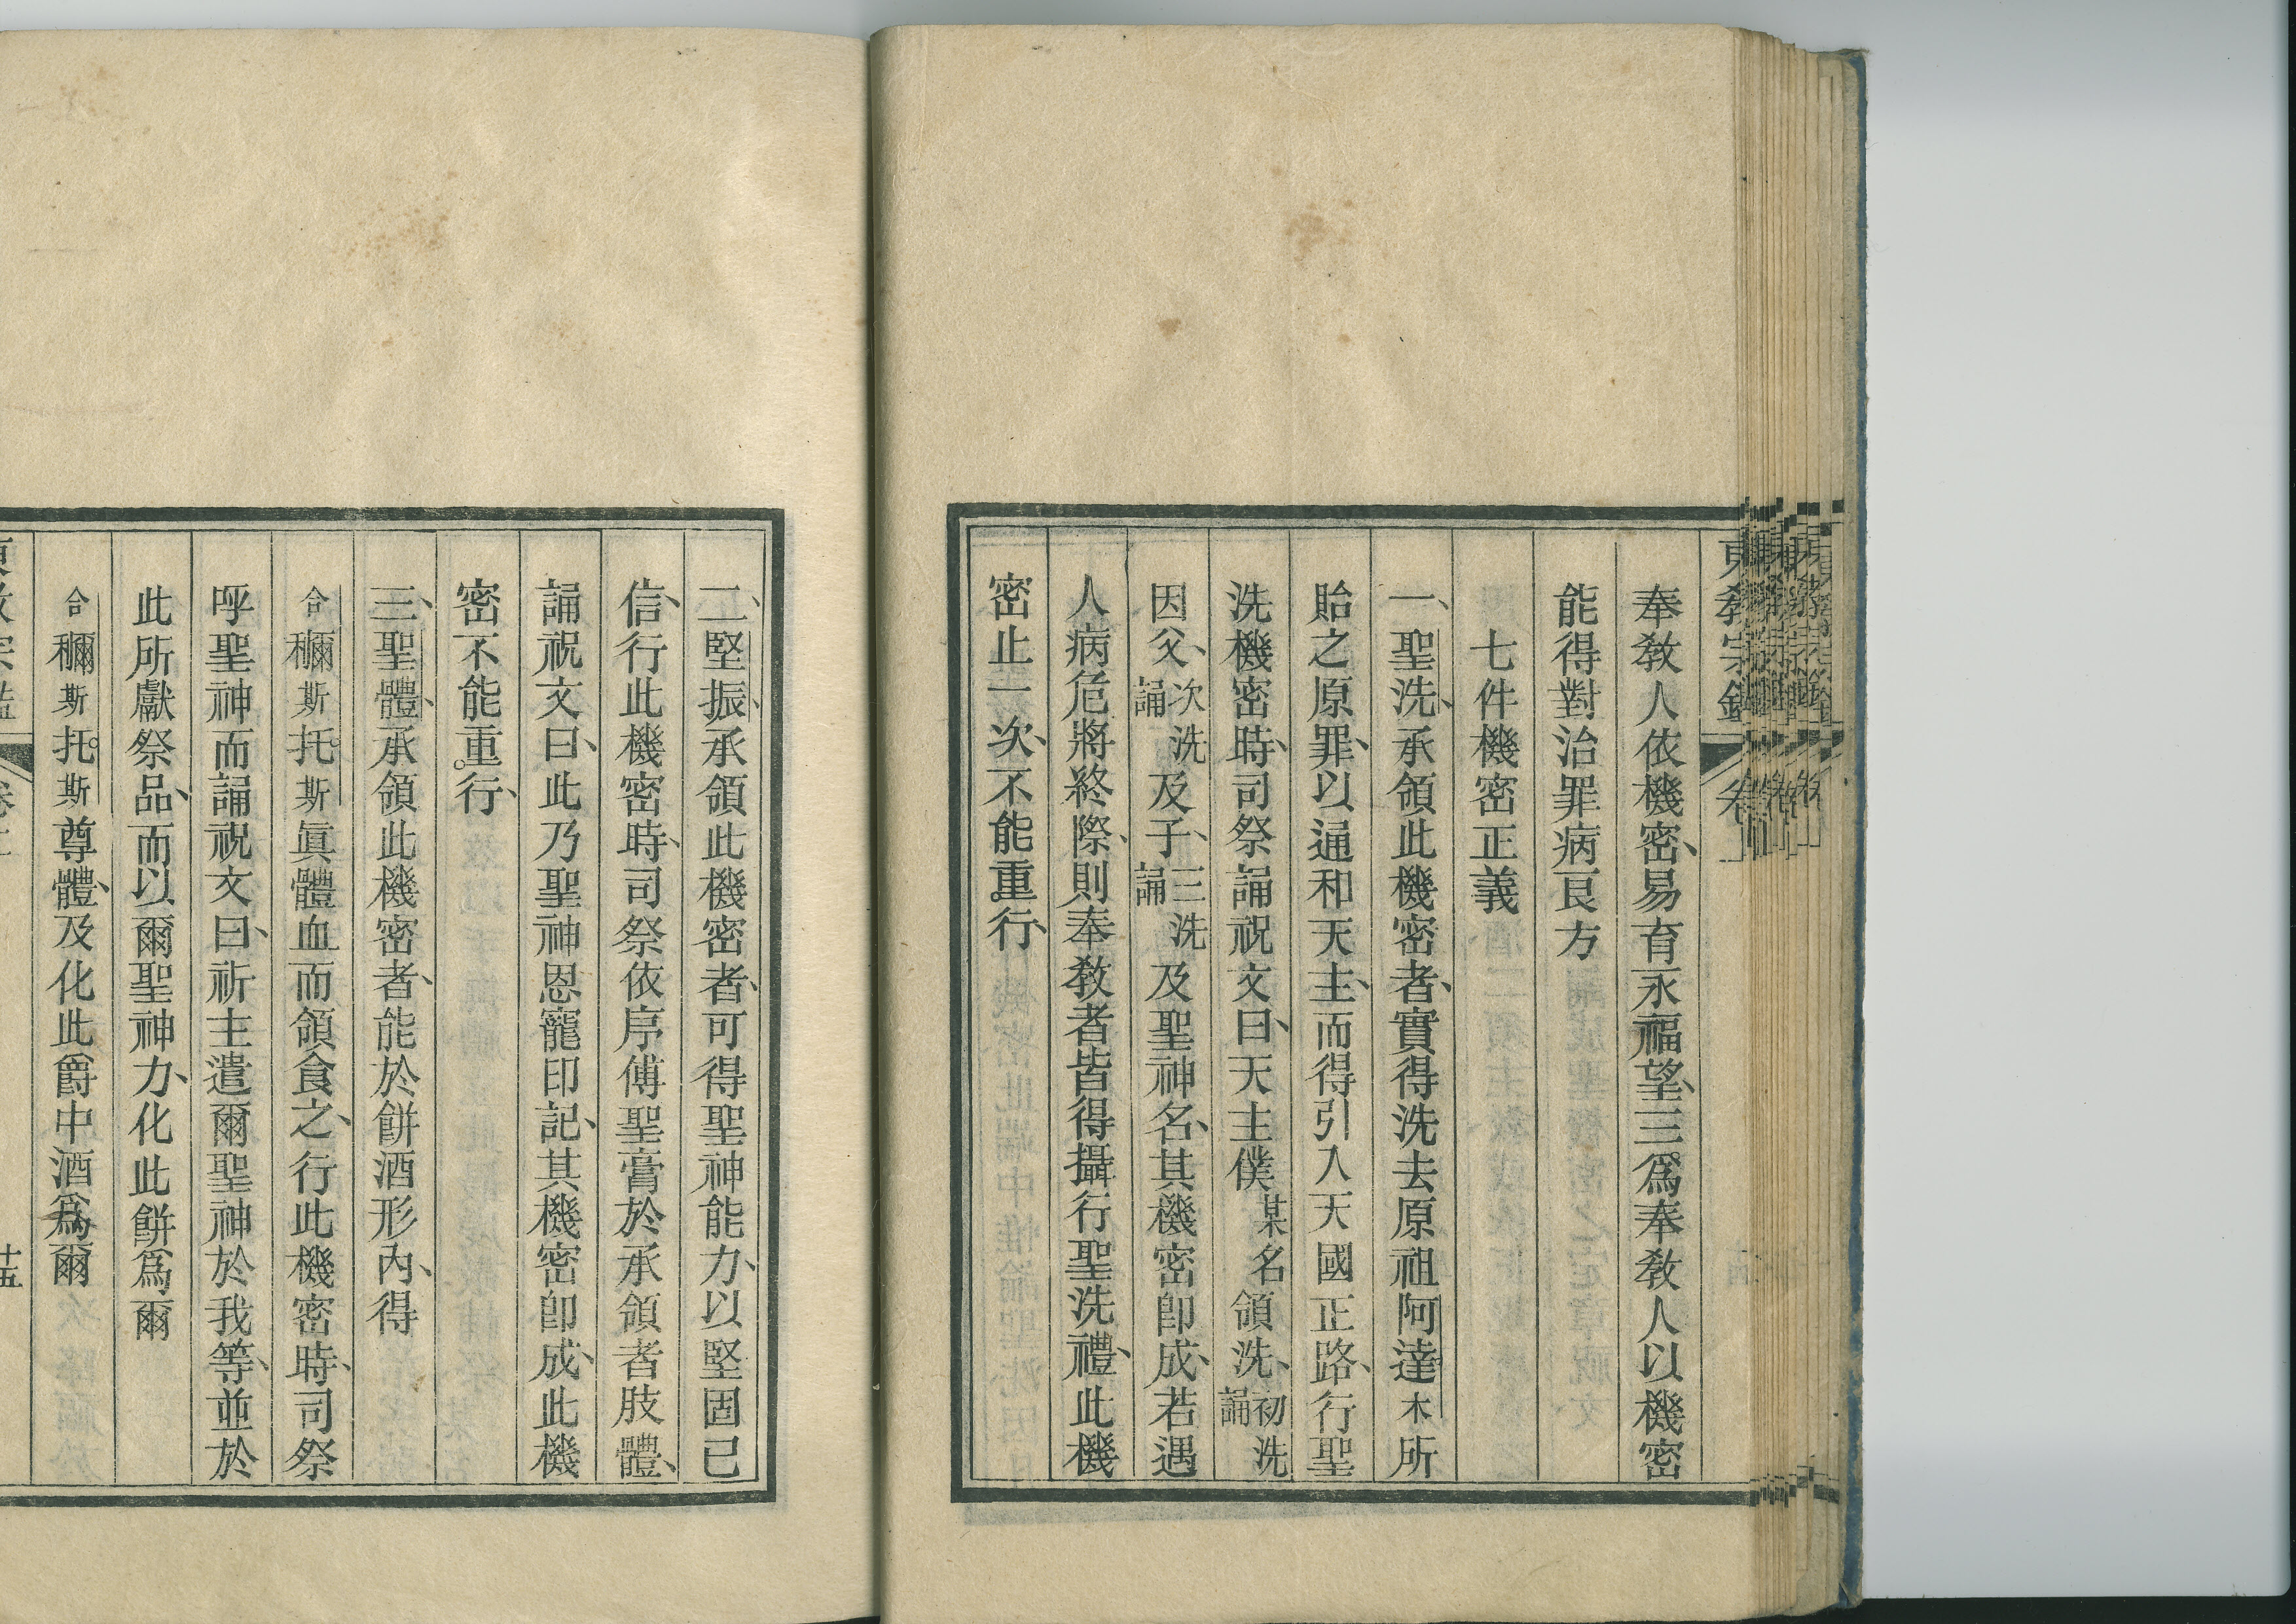 東教宗鑑
奉教人依機密、易育永福望、三。爲奉教人以機密
能得對治罪病良方
七件機密正義
一、聖洗、承領此機密者、實得洗去原祖阿達木所
貽之原罪、以通和天主、而得引入天國正路、行聖
洗機密時、司祭誦祝文曰、天主僕某名領洗、初洗誦
因父、次洗誦及子、三洗誦及聖神名、其機密卽成、若遇
人病危將終際、則奉教者皆得攝行聖洗禮、此機
密止一次、不能重。行、
二、堅振、承領此機密者、可得聖神能力、以堅固已
信、行此機密時、司祭依序傅聖膏於承領者肢體、
誦祝文曰、此乃聖神恩寵印記、其機密卽成、此機
密不能重。行、
三、聖體、承領此機密者、能於餅酒形內、得
合穪斯托。斯眞體血而領食之、行此機密時、司祭
呼聖神而誦祝文曰、祈主遣爾聖神於我等、並於
此所獻祭品、而以爾聖神力、化此餅爲爾
合穪斯托。斯尊體、及化此爵中酒爲爾
東教宗鑑 卷二 十五